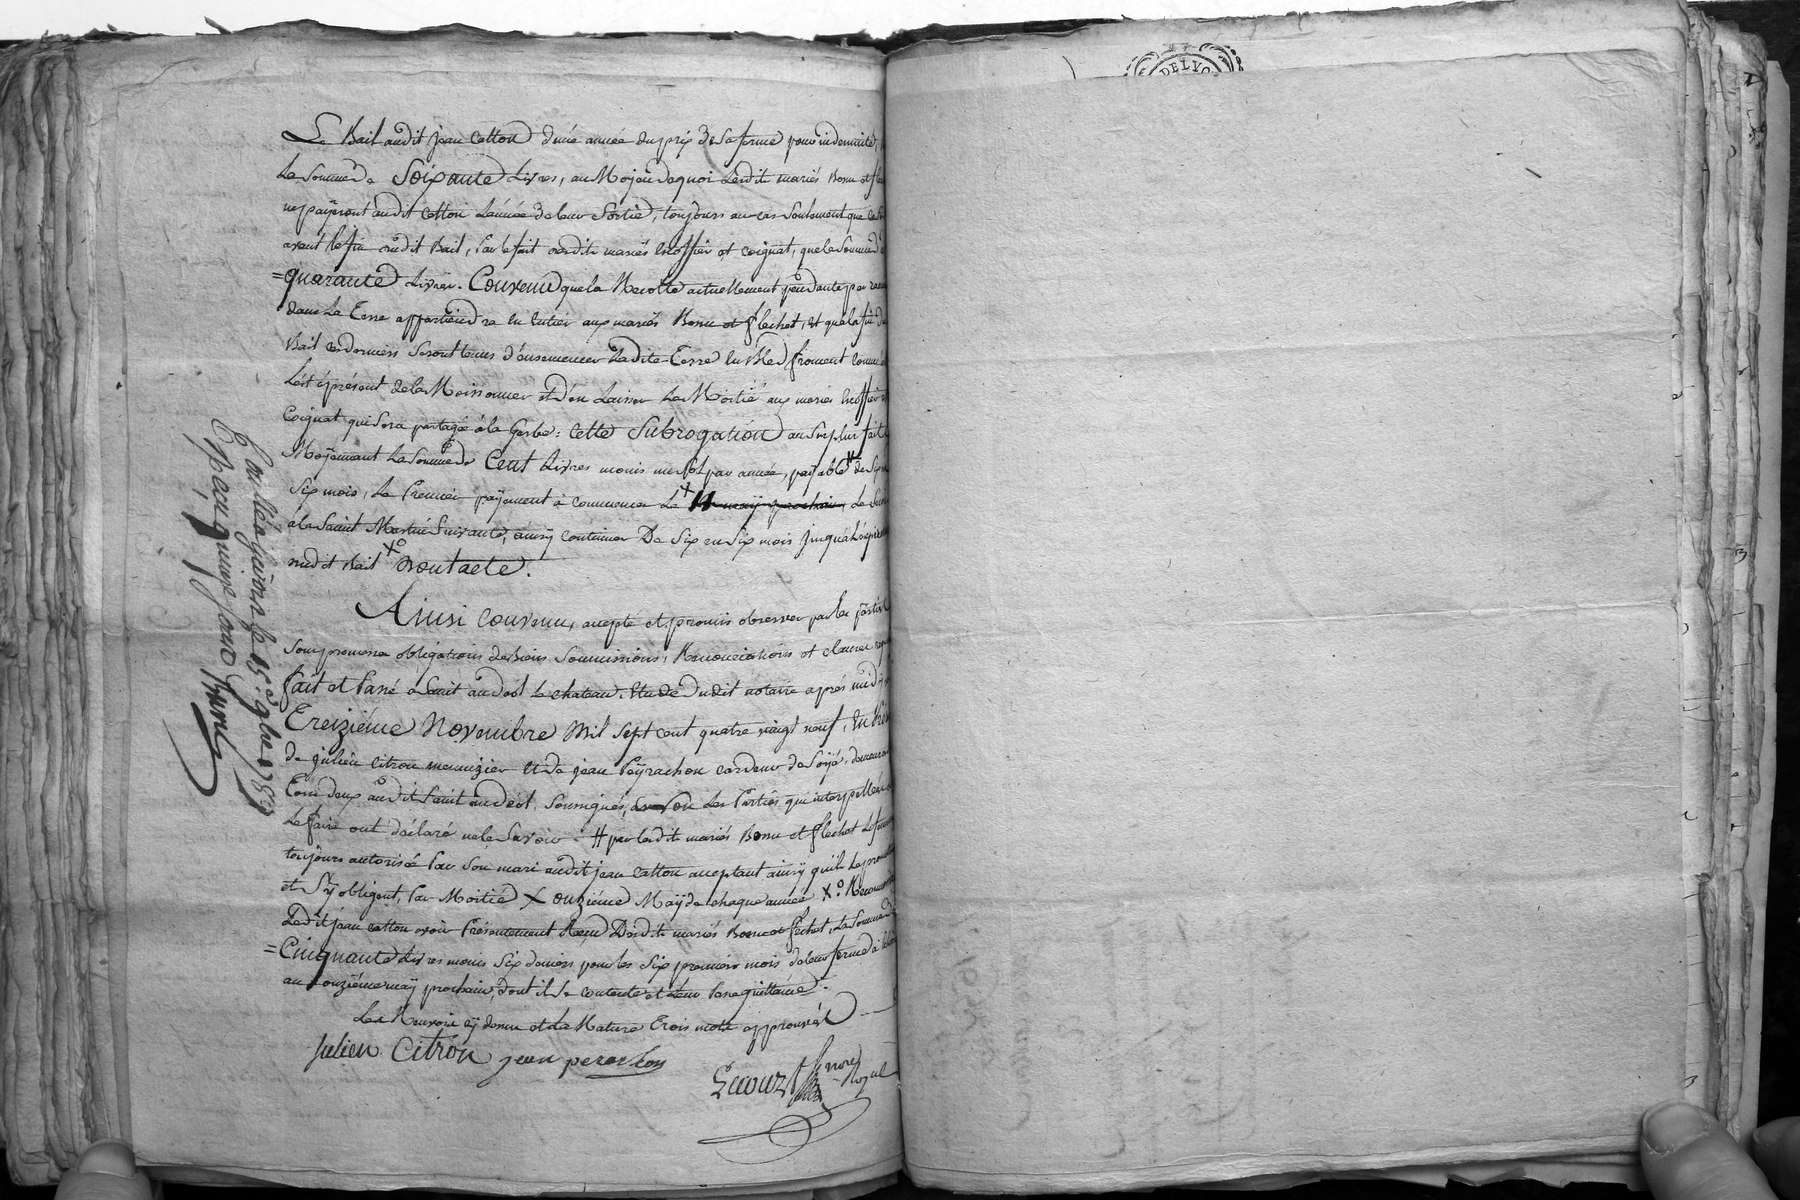 Le Bail audit jean Catton d'une année du prix de sa ferme pour indemnité,
La Somme de Soixante Livres, au Moyen de quoi Lesdits mariés Bonu et
ne payeront audit Catton L'année de leur Sortie, toujours au cas Seulement que
avant la fin dudit Bail, par le fait desdits mariés Escoffier et Coignat, que la Somme
=quarante Livres. Convenu que la Recolte actuellement pendante par
dans La Terre appartiendra en Entier aux mariés Bonu et flechet, et qu'a la fin
Bail ces derniers Seront tenus d'ensemencer Ladite Terre en Bled froment comme
L'est à présent de la Moissonner et d'en Laisser La Moitié aux mariés Escoffier
Coignat qui Sera partagé à la Gerbe: Cette Subrogation au Surplus fait
Moyennant La Somme de Cent Livres moins un sol par année, payable # de Six
Six mois, Le Premier payement à commencer Le + 11 may prochain, Le
à la Saint Martin Suivante, ainsy continuer De Six en Six mois jusqu'à L'expiration
dudit Bail +° Dont acte.
Ainsi Convenu, accepté et promis observer par les parties
Sous promesse obligations de Biens Soumissions, Renonciations et clauses
fait et Passé à Saint andéol Le chateau, Etude dudit notaire après midi
Treizième Novembre Mil Sept cent quatre vingt neuf, En
de julien Citron menuizier et de jean Peyrachon cardeur de Soye, demeurant
Tous deux audit Saint andéol, Soussignés, Les Parties qui interpellées
Le faire ont déclaré ne le Savoir. # par lesdits mariés Bonu et flechet La femme
toujours autorisée Par Son mari audit jean Catton acceptant ainsy qu'ils Le promettent
et S'y obligent, Par Moitié + onzième May de chaque année +°
Ledit jean Catton avoir Présentement Reçu Desdits mariés Bonu et flechet, La Somme de
=Cinquante Livres moins Six deniers pour les Six premiers mois de leur ferme à
au onzième may prochain, dont il Se contente et Leur Passe quittance.
Les Renvois cy dessus et La Rature Trois mots approuvés
julien Citron jean perachon
Controllé à Givors le 15e 9bre 1789
Reçu quinze sous
DELYO